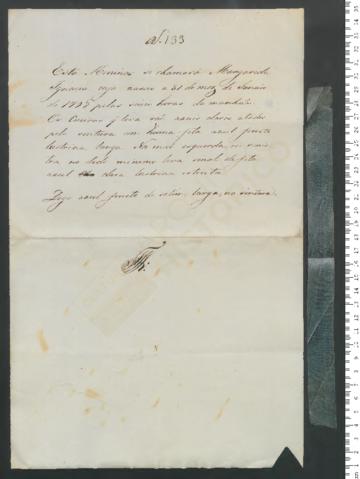 N.º 133
Esta Menina se chamará Margarida
Ignacia cuja nasceo a 31 do mez de Janeiro
de 1795 pelas seis horas da manhã.
Os Couros q leva vai azuis claros atados
pela cintura com huma fita azul ferrete
lustrina larga. Na mão esquerda
no dedo minimo leva sinal de fita
azul clara lustrina estreita
Digo azul ferrete de setim, larga, na cintura.